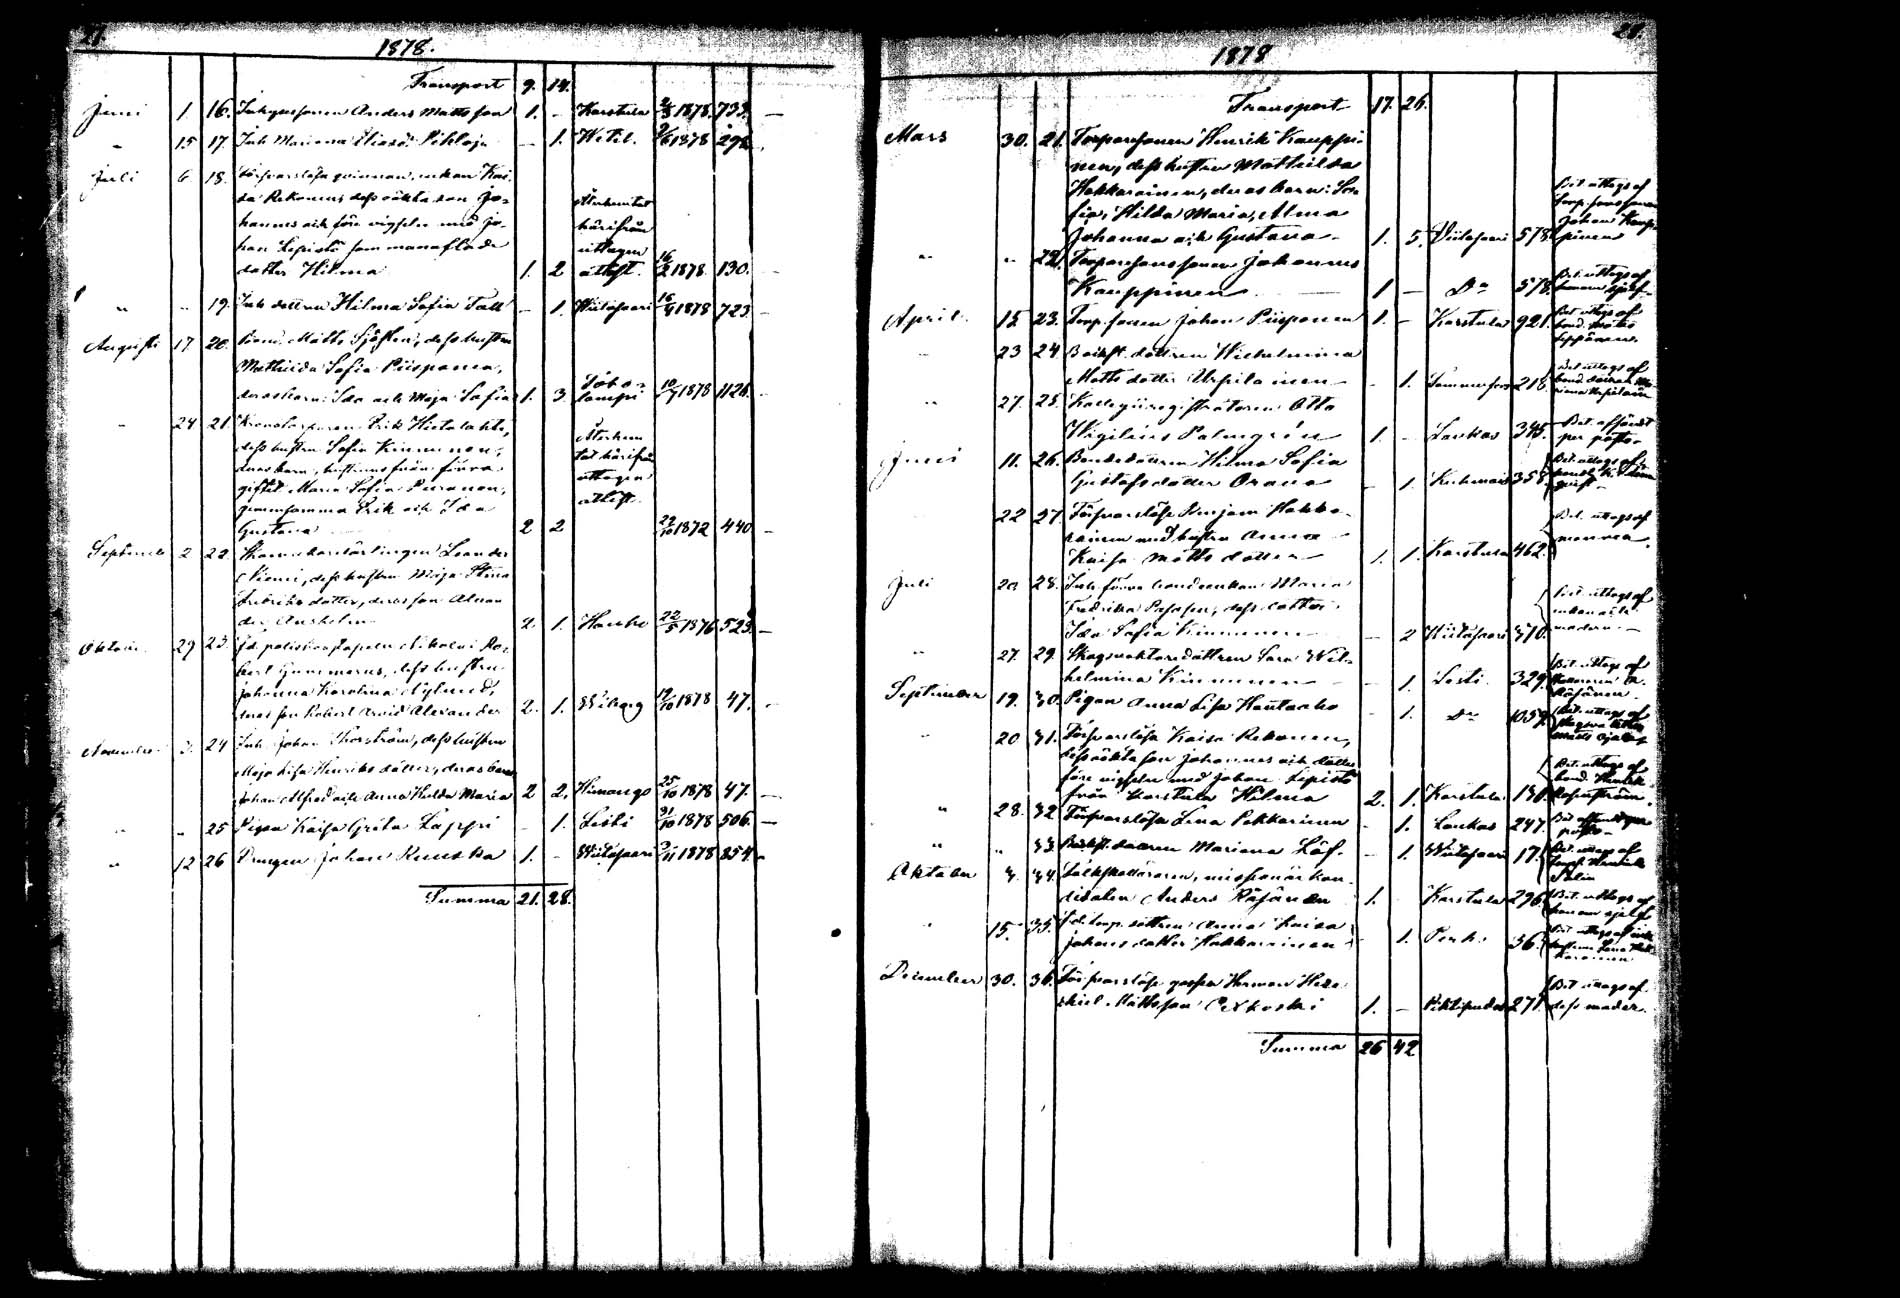 27.
1878.
Transport 9. 14.
Juni 1 16. Inhysessonen Anders Mattsson 1. - Karstula 2/3 1878. 733. -
" 15 17. Inh. Mariana Eliasd. Pihlaja - 1. Wetil. 9/6 1878 292.
Juli 6. 18. Försvarslösa qvinnan, enkan Kai-
sa Rekonens dess oäkta son Jo-
hannes och före vigseln med Jo-
han Lepistö sammanaflade
dotter Hilma 1. 2
Återkommit
härifrån
uttagen
attest. 16/2 1878. 130. -
" " 19. Inh. dottren Hilma Sofia Fält - 1. Wiitasaari 16/4 1878 723 -
Augusti 17. 20. Bond. Matts Sjösten, dess hustru
Mathilda Sofia Piispanen,
deras barn: Ida och Maja Sofia 1. 3. Toho-
lampi 10/7 1878 1126. -
" 24 21 Kronotorparen Erik Hietalahti,
dess hustru Sofia Kinnunen,
deras barn, hustruns från förra
giftet Maria Sofia Puranen,
gemensamma Erik och Ida
Gustava 2 2
Återkom
mit härifrån
uttagen
attest. 22/10 1872 440 -
September 2 22. Skomakarlärlingen Leander
Niemi, dess hustru Maja Stina
Fredriks dotter, deras son Alexan
der Anshelm 2. 1. 22/5 1876 523. -
Oktober 29 23. Fd. poliskonstapeln Nikolai Ro-
bert Gummerus, dess hustru
Johanna Karolina Nylund,
deras son Robert Arvid Alexander 2. 1. Wiborg 19/10 1878 47. -
November 2. 24 Inh. Johan Thorström, dess hustru
Maja Lisa Henriks dotter, deras barn
Johan Alfred och Anna Hulda Maria 2 2. Himango 25/10 1878 47. -
" " 25 Pigan Kaisa Greta Lappi - 1. Lesti 31/10 1878 506. -
" 12 26 Drengen Johan Ruuska 1. - Wiitasaari 9/11 1878 854 -
Summa 21. 28.
28.
1878
Transport 17. 26.
Mars 30. 21. Torparsonen Henrik Kauppi-
nen, dess hustru Mathilda
Hakkarainen, deras barn: So-
fia, Hilda Maria, Alma
Johanna och Gustava - 1. 5. Viitasaari 578.
Bet. uttogs af
torp. sonsonen
Johan Kaup-
pinen
" " 22. Torparsonsonen Johannes
Kauppinen 1 - Do 578.
Bet. uttogs af
honom sjelf -
April 15. 23. Torp. sonen Johan Piispanen 1. - Karstula 921.
Bet. uttogs af
bond. Matts
Leppänen.
" 23 24. Backst. dottren Wilhelmina
Matts dotter Urpilainen - - 1. Tammerfors 218.
Bet. uttogs af
bond. dottren Ma-
ria Urpilain
" 27. 25. Kollegiiregistratoren Otto
Wigilius Palmgrén 1. - Laukas 345.
Bet. afsändt
per posto -
Juni 11. 26. Bondedottren Hilma Sofia
Gustafsdotter Orava - 1. Kuhmois 358.
Bet. uttogs af
22 27. Försvarslöse Benjam. Hakka-
rainen med hustru Anna
Kaisa Matts dotter - 1. 1. Karstula 462.
Bet. uttogs af
mannen.
Juli 20. 28. Inh. förra bondeenkan Maria
Fredrika Pasasen, dess dotter
Ida Sofia Kinnunen - 2 Wiitasaari 370.
Bet. uttogs af
enkan och
modern. -
" 27. 29. Skogvaktaredottren Sara Wil-
helmina Kinnunen - 1. Lesti. 329.
Bet. uttogs af
Räsänen
September 19. 30. Pigan Anna Lisa Hautaaho - 1. Do 1059.
Bet. uttogs af
" 20 31. Försvarslösa Kaisa Rekonen,
dess oäkta son Johannes och dotter
före vigseln med Johan Lepistö
från Karstula Hilma 2. 1. Karstula 130.
Bet. uttogs af
bond. Henrik
" 28. 32. Försvarslösa Lena Pekkarinen - 1. Laukas 247.
Bet. afsänd per
posto -
" " 33. Backst. dottren Mariana Löf. - 1. Wiitasaari 17.
Bet. uttogs af
Torp. Henrik
Oktober 3. 34. Folkskolläraren, missionärkan-
didaten Anders Räsänen 1. Karstula 296.
Bet. uttogs af
honom sjelf
" 15. 35. Fd. torp. dottren Anna Lovisa
Johans dotter Hakkarainen - 1. Perho 36.
December 30. 36. Försvarslöse gossen Herman Hese-
kiel Mattsson Oxkoski 1. - Pihtipudas 271.
Bet. uttogs af
dess moder.
Summa 26 42